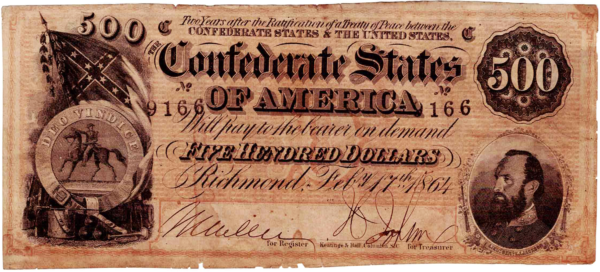 500 C Two Years after the Ratification of a Treaty of Peace between the C
CONFEDERATE STATES & THE UNITED STATES,
THE Confederate States 500
No 9166 OF AMERICA No 9166
Will pay to the bearer on demand
DEO VINDICE
FIVE HUNDRED DOLLARS
Richmond, Feby. 17th, 1864
for Register Keatinge & Ball, Columbia, S.C. for Treasurer